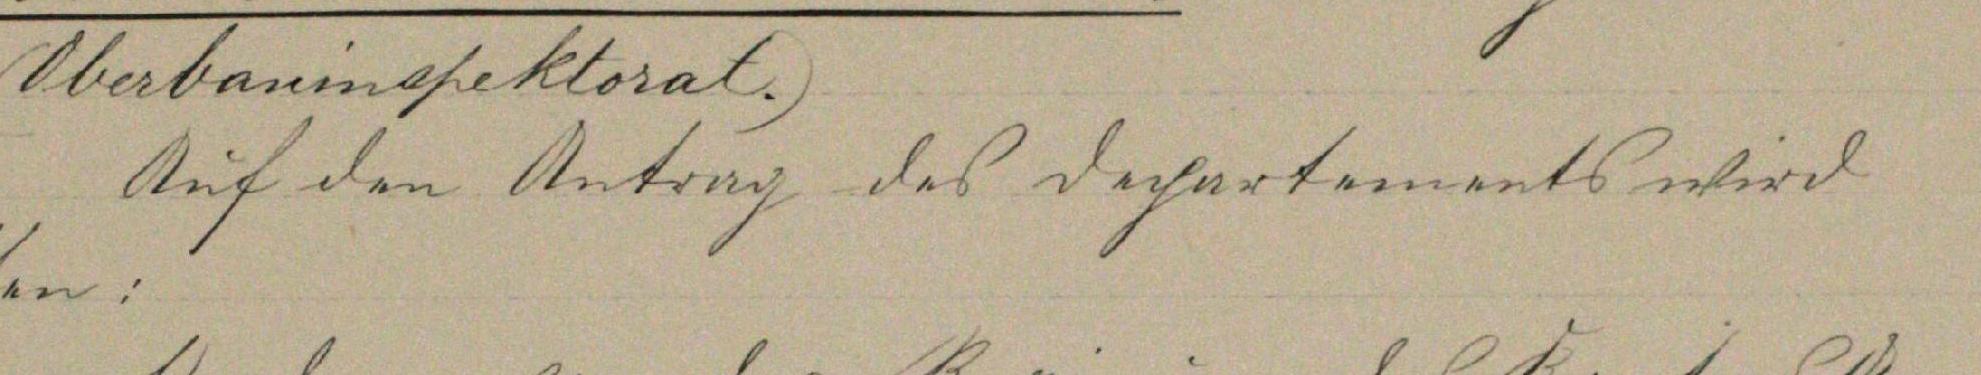 (Oberbauinspektorat.)
Auf den Antrag des Departements wird
en: